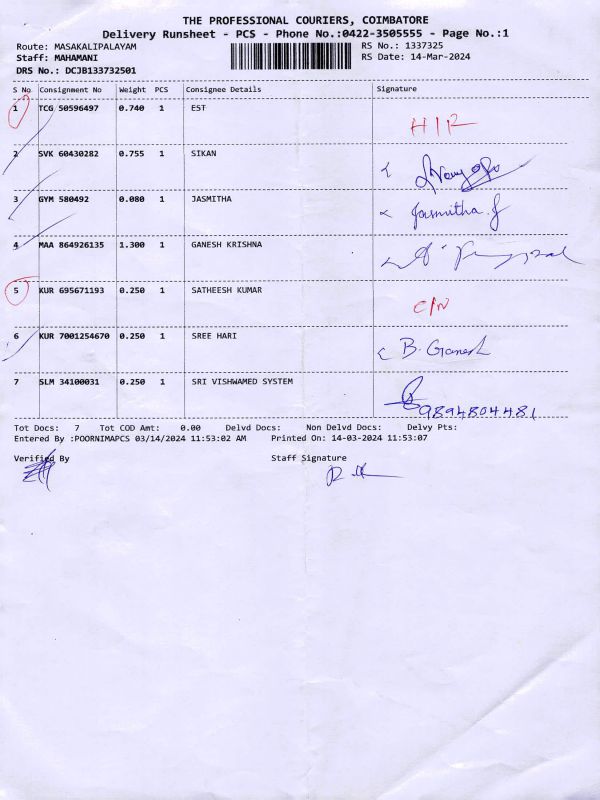 THE PROFESSIONAL COURIERS, COIMBATORE
Delivery Runsheet - PCS - Phone No.:0422-3505555 - Page No.:1
Route: MASAKALIPALAYAM RS No.: 1337325
Staff: MAHAMANI RS Date: 14-Mar-2024
DRS No.: DCJB133732501
S No Consignment No Weight PCS Consignee Details Signature
1 TCG 50596497 0.740 1 EST
2 SVK 60430282 0.755 1 SIKAN
3 GYM 580492 0.080 1 JASMITHA Jasmitha.J
4 MAA 864926135 1.300 1 GANESH KRISHNA
5 KUR 695671193 0.250 1 SATHEESH KUMAR C/N
6 KUR 7001254670 0.250 1 SREE HARI B. Ganesh
7 SLM 34100031 0.250 1 SRI VISHWAMED SYSTEM 9894804481
Tot Docs: 7 Tot COD Amt: 0.00 Delvd Docs: Non Delvd Docs: Delvy Pts:
Entered By :POORNIMAPCS 03/14/2024 11:53:02 AM Printed On: 14-03-2024 11:53:07
Verified By Staff Signature